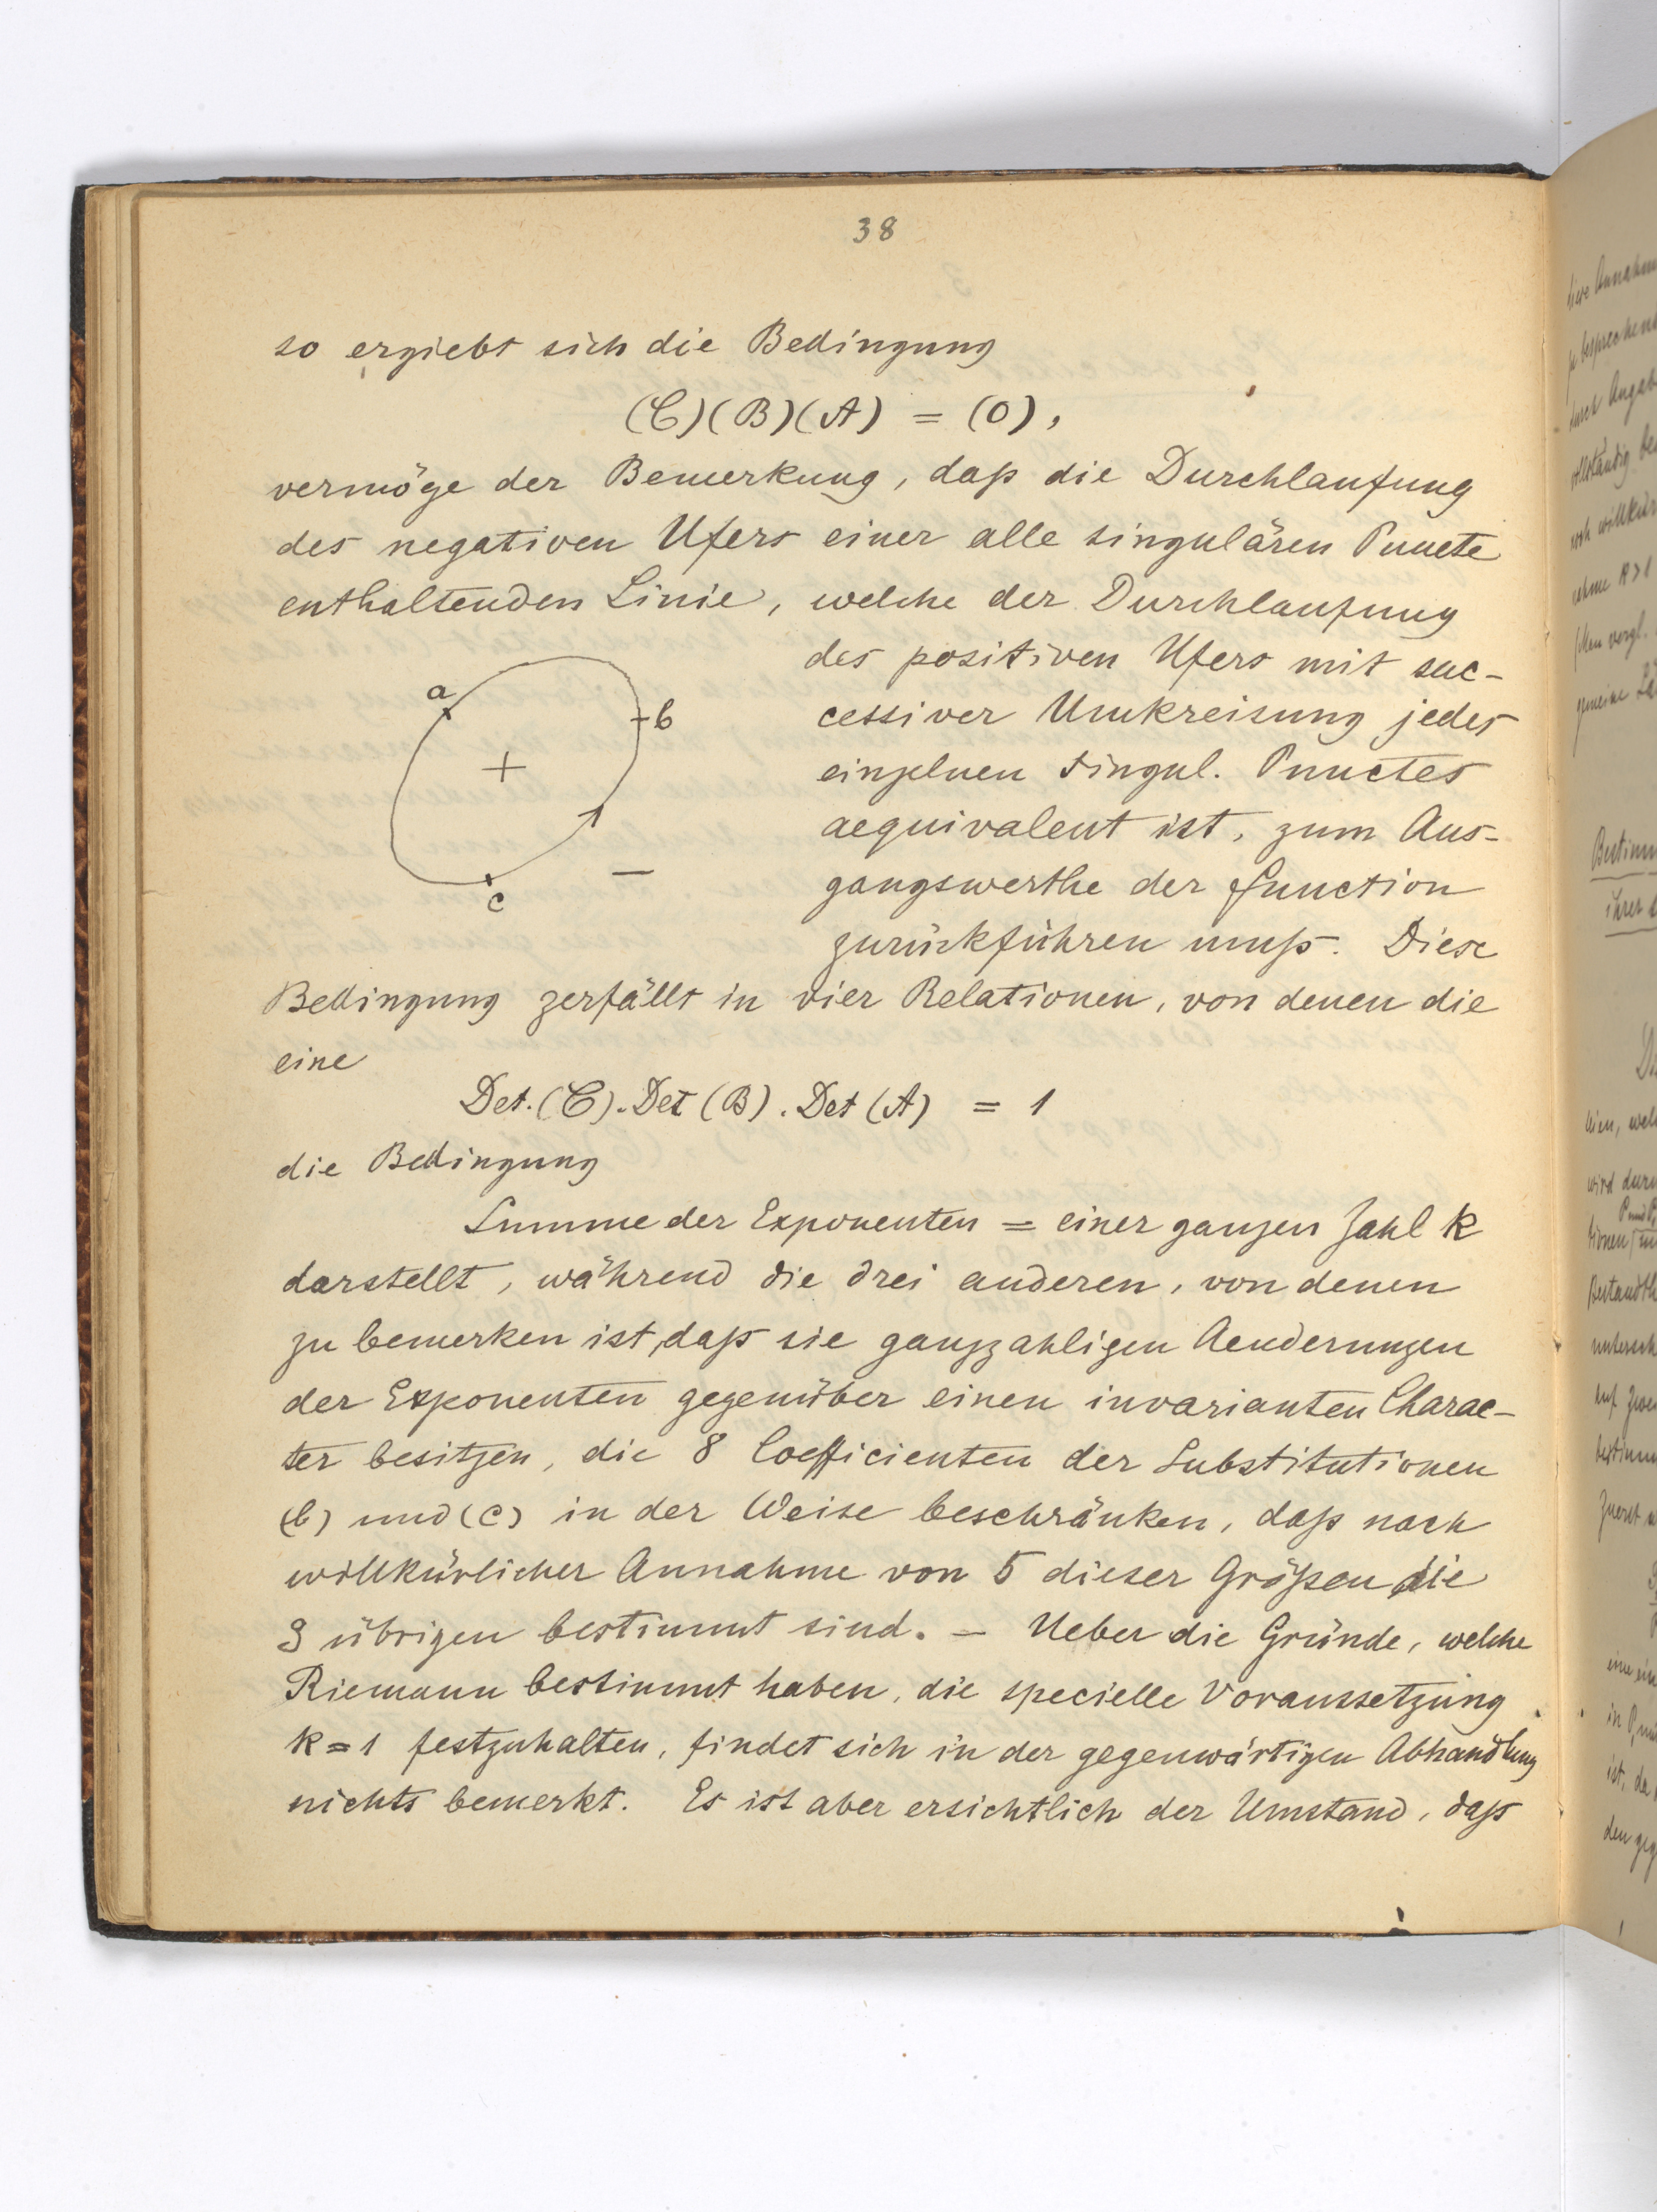 38
so ergiebt sich die Bedingung
(C)(B)(A) = (0),
vermöge der Bemerkung, daß die Durchlaufung
des negativen Ufers einer alle singulären Puncte
enthaltenden Linie, welche der Durchlaufung
des positiven Ufers mit suc-
cessiver Umkreisung jedes
einzelnen singul. Punctes
aequivalent ist, zum Aus-
gangswerthe der Function
zurückführen muß. Diese
a
b
+
−
c
Bedingung zerfällt in vier Relationen, von denen die
eine
Det.(C).Det(B).Det(A) = 1
die Bedingung
Summe der Exponenten = einer ganzen Zahl k
darstellt, während die drei anderen, von denen
zu bemerken ist, daß sie ganzzahligen Aenderungen
der Exponenten gegenüber einen invarianten Charac-
ter besitzen, die 8 Coefficienten der Substitutionen
(b) und (c) in der Weise beschränken, daß nach
willkürlicher Annahme von 5 dieser Größen die
3 übrigen bestimmt sind. – Ueber die Gründe, welche
Riemann bestimmt haben, die specielle Voraussetzung
k=1 festzuhalten, findet sich in der gegenwärtigen Abhandlung
nichts bemerkt. Es ist aber ersichtlich der Umstand, daß